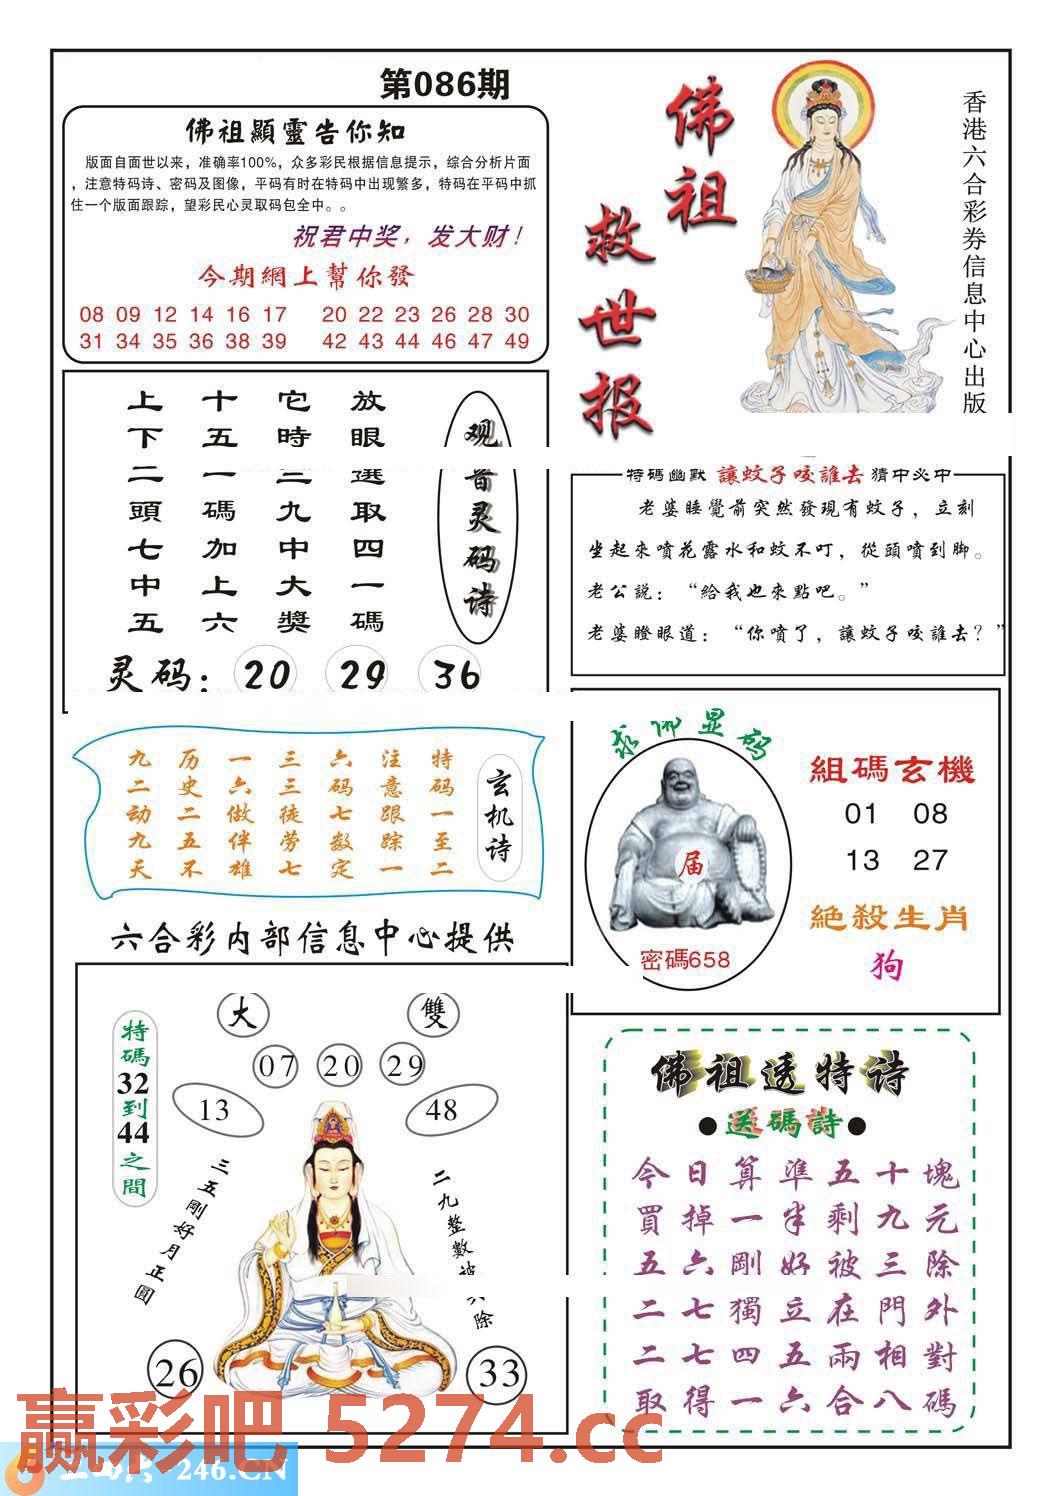 第086期
佛祖顯靈告你知
版面自面世以来，准确率100%，众多彩民根据信息提示，综合分析片面
，注意特码诗、密码及图像，平码有时在特码中出现繁多，特码在平码中抓
住一个版面跟踪，望彩民心灵取码包全中。。
祝君中奖，发大财！
今期網上幫你發
08 09 12 14 16 17 20 22 23 26 28 30
31 34 35 36 38 39 42 43 44 46 47 49
佛祖
救世报
香港六合彩券信息中心出版
观音灵码诗
放眼選取四一碼
它時三九中大獎
十五一碼加上六
上下二頭七中五
灵码：20 29 36
特碼幽默 讓蚊子咬誰去 猜中必中
老婆睡覺前突然發現有蚊子，立刻
坐起來噴花露水和蚊不叮，從頭噴到脚。
老公説：“給我也來點吧。”
老婆瞪眼道：“你噴了，讓蚊子咬誰去？”
玄机诗
特码一至二
注意跟踪一
六码七数定
三三徒劳七
一六做伴雄
历史二五不
九二动九天
求佛显码
届
密碼658
組碼玄機
01 08
13 27
絕殺生肖
狗
六合彩内部信息中心提供
大 雙
07 20 29
13 48
特碼32到44之間
三五剛好月正圓
二九整數被
除
26 33
佛祖透特诗
●送碼詩●
今日算準五十塊
買掉一半剩九元
五六剛好被三除
二七獨立在門外
二七四五兩相對
取得一六合八碼
赢彩吧 5274.cc
246.CN